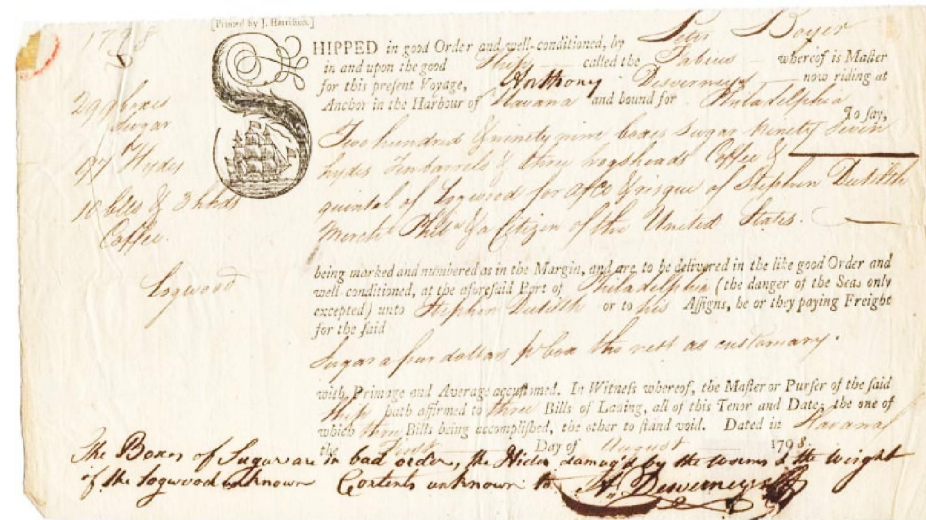 [Printed by J. Harrison.]
1798
SHIPPED in good Order and well-conditioned, by Peter Boyer
in and upon the good Ship called the Fabius whereof is Master
for this present Voyage, Anthony Deverneys now riding at
Anchor in the Harbour of Havana and bound for Philadelphia
To say,
299 boxes
Sugar
97 Hydes
10 blls & 3 hhds
Coffee.
Logwood
Two hundred & ninety nine boxes Sugar Ninety Seven
hydes Ten barrels & three hogsheads Coffee &
quintal of Logwood for a/co & risque of Stephen Dutilth
Merch.t Phil.a & a Citizen of the United States.
being marked and numbered as in the Margin, and are to be delivered in the like good Order and
well-conditioned, at the aforesaid Port of Philadelphia (the danger of the Seas only
excepted) unto Stephen Dutilth or to his Assigns, he or they paying Freight
for the said
Sugar a four dollars p box the rest as customary.
with Primage and Average accustomed. In Witness whereof, the Master or Purser of the said
Ship hath affirmed to three Bills of Lading, all of this Tenor and Date; the one of
which three Bills being accomplished, the other to stand void. Dated in Havana
the First Day of August 1798.
The Boxes of Sugar are in bad order, the Hides damag'd by the worms & the weight
of the Logwood unknown Contents unknown to A. Deverneys